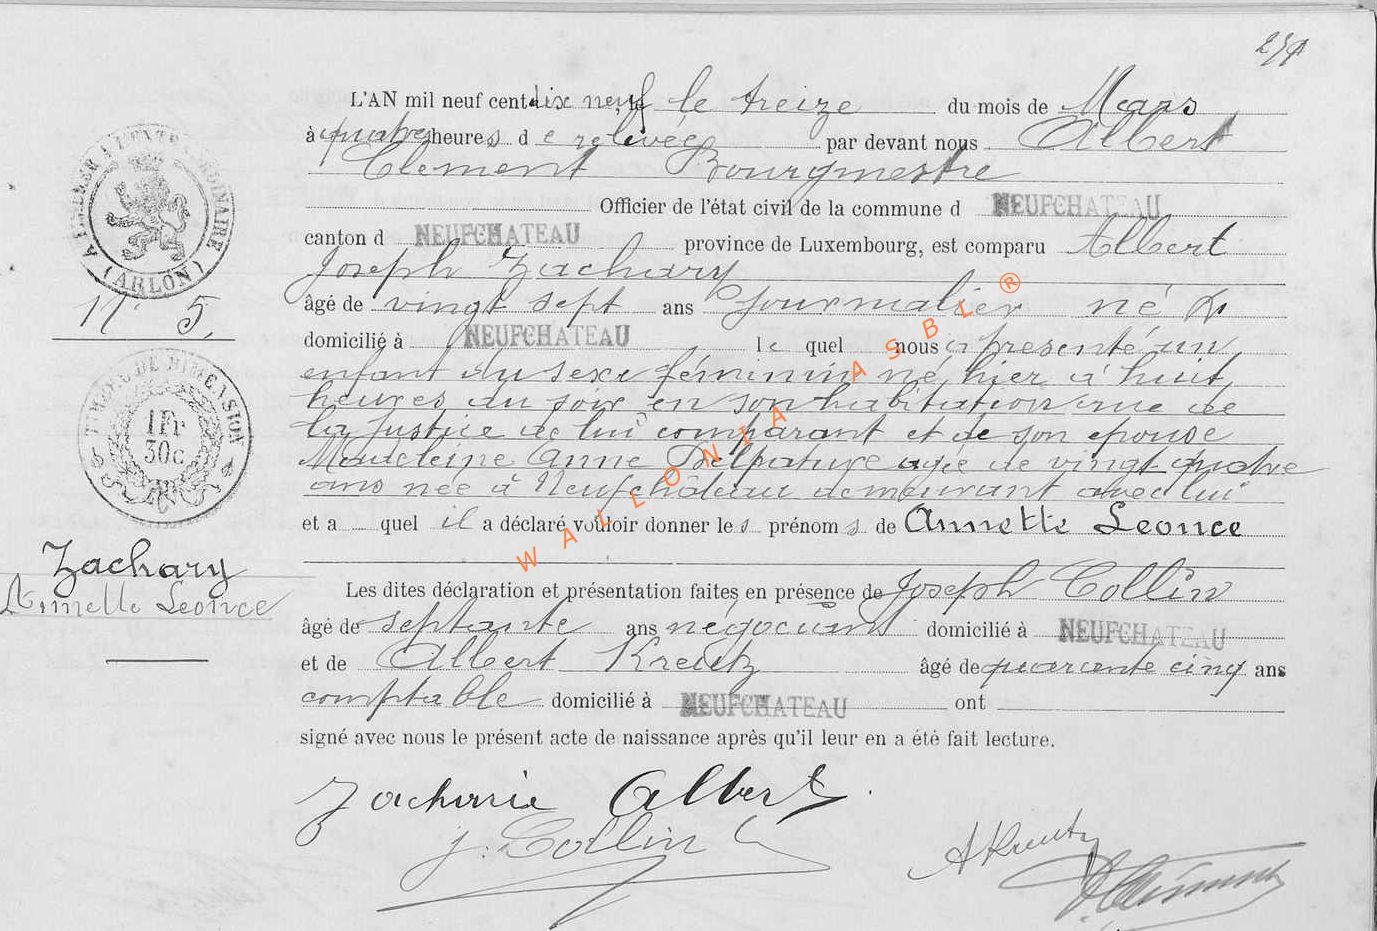 L'AN mil neuf cent dix neuf, le treize du mois de Mars
à quatre heures de relevée par devant nous Albert
Clement Bourgmestre
Officier de l'état civil de la commune d NEUFCHATEAU
canton d NEUFCHATEAU province de Luxembourg, est comparu Albert
Joseph Zachary
âgé de vingt sept ans journalier né &
domicilié à NEUFCHATEAU lequel nous a présenté un
enfant du sexe féminin né hier à huit
heures du soir en son habitation rue de
la justice de lui comparant et de son épouse
Madeleine Anne Delpature agée de vingt-quatre
ans née à Neufchâteau demeurant avec lui
et a quel il a déclaré vouloir donner les prénoms de Annette Leonce
Les dites déclaration et présentation faites en présence de Joseph Collin
âgé de septante ans négociant domicilié à NEUFCHATEAU
et de Albert Kreutz âgé de quarante cinq ans
comptable domicilié à NEUFCHATEAU ont
signé avec nous le présent acte de naissance après qu'il leur en a été fait lecture.
Zacharie Albert.
J. Collin
A Kreutz
(ARLON)
N 5.
TIMBRE DE DIMENSION
1 Fr
30 c
Zachary
Annette Leonce
WALLONIA ASBL ®